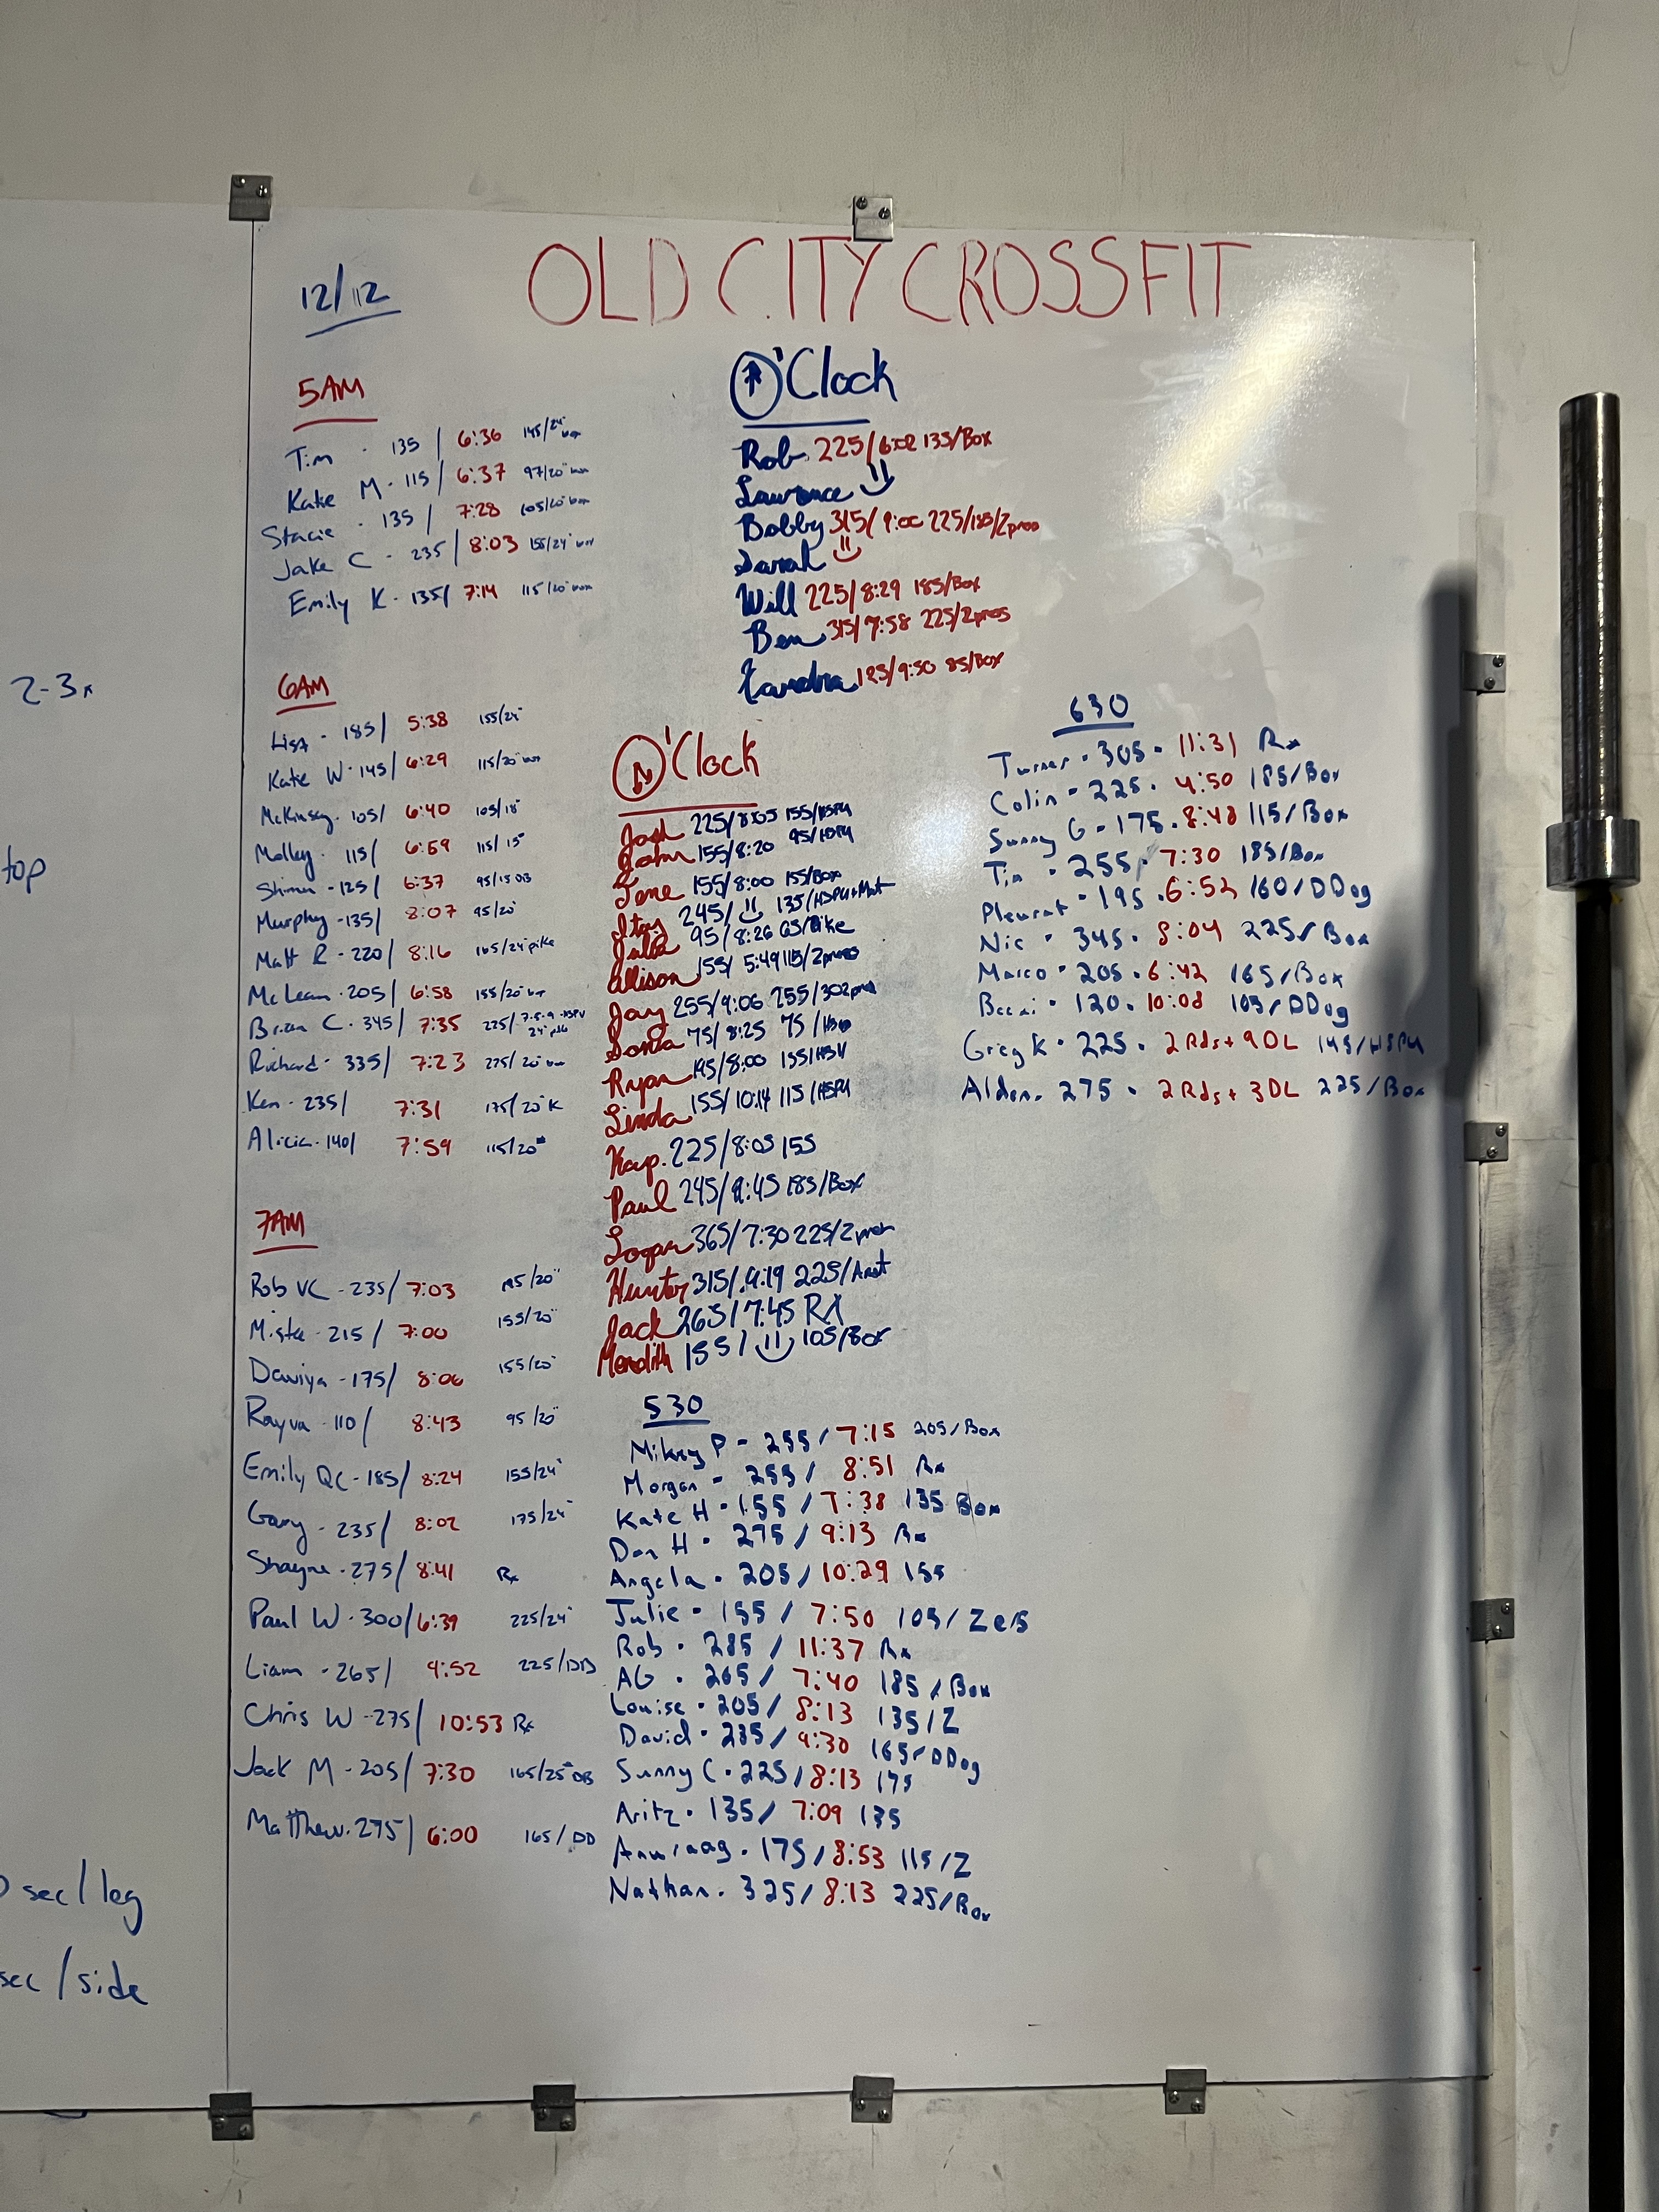 2-3x
top
sec/leg
sec/side
12/12
OLD CITY CROSSFIT
5AM
Tim - 135 / 6:36 145/24" box
Kate M - 115/ 6:37 97/20" box
Stacie - 135 / 7:28 105/20" box
Jake C - 235 / 8:03 155/24" box
Emily K - 135/ 7:14 115/20" box
6AM
Lisa - 185/ 5:38 155/24"
Kate W - 145/ 6:29 115/20" box
McKinsey - 105/ 6:40 105/18"
Molley - 115/ 6:59 115/15"
Shimon - 125/ 6:37 95/15 DB
Murphy - 135/ 8:07 95/20"
Matt R - 220/ 8:16 165/24" pike
McLean - 205/ 6:58 155/20" box
Brian C - 345/ 7:35 225/
Richard - 335/ 7:23 225/20" box
Ken - 235/ 7:31 175/20" K
Alicia - 140/ 7:59 115/20"
7AM
Rob VC - 235/ 7:03 /20"
Mista - 215 / 7:00 155/20"
Dawiya - 175/ 8:06 155/20"
Rayva - 110/ 8:43 95/20"
Emily QC - 185/ 8:24 155/24"
Gary - 235/ 8:02 175/24"
Shayne - 275/ 8:41 Rx
Paul W - 300/ 6:39 225/24"
Liam - 265/ 9:52 225/DB
Chris W - 275/ 10:53 Rx
Jack M - 205/ 7:30 165/25# DB
Matthew - 275/ 6:00 165/DD
O'Clock
Rob 225/ 135/Box
Lawrence
Bobby 315/ 9:00 225/185/2pros
Sarah
Will 225/8:29 185/Box
Ben 315/7:58 225/2pros
Xandra 125/9:50 85/Box
O'Clock
Josh 225/8:05 155/HSPU
John 155/8:20 95/HSPU
Jene 155/8:00 155/Box
Itay 245/ 135/HSPU+Mat
Julia 95/8:26 65/Pike
Allison 155/ 5:49 115/2pros
Jay 255/9:06 255/
Sonia 75/8:25 75/
Ryan 195/8:00 155/
Linda 155/10:14 115/HSPU
Kap. 225/8:05 155
Paul 245/ 185/Box
Logan 365/7:30 225/2pros
Hunter 315/9:19 225/
Jack 265/7:45 RX
Meredith 155/ 105/Box
530
Mikey P - 255/ 7:15 205/Box
Morgan - 255/ 8:51 Rx
Kate H - 155 / 7:38 135 Box
Dan H - 275 / 9:13 Rx
Angela - 205/ 10:29 155
Julie - 155 / 7:50 105/
Rob - 285 / 11:37 Rx
AG - 265/ 7:40 185/Box
Louise - 205/ 8:13 135/Z
David - 235/ 9:30 165/DDog
Sunny C - 225/ 8:13 175
Aritz - 135/ 7:09 135
Anuraag - 175/ 8:53 115/Z
Nathan - 325/ 8:13 225/Box
630
Turner - 305 - 11:31 Rx
Colin - 225 - 4:50 185/Box
Sunny G - 175 - 8:48 115/Box
Tim - 255 - 7:30 185/Box
Pleurat - 195 - 6:52 160/DDog
Nic - 345 - 8:04 225/Box
Marco - 205 - 6:42 165/Box
Becai - 120 - 10:08 105/DDog
Greg K - 225 - 2 Rds + 9 DL 145/HSPU
Alden - 275 - 2 Rds + 3 DL 225/Box